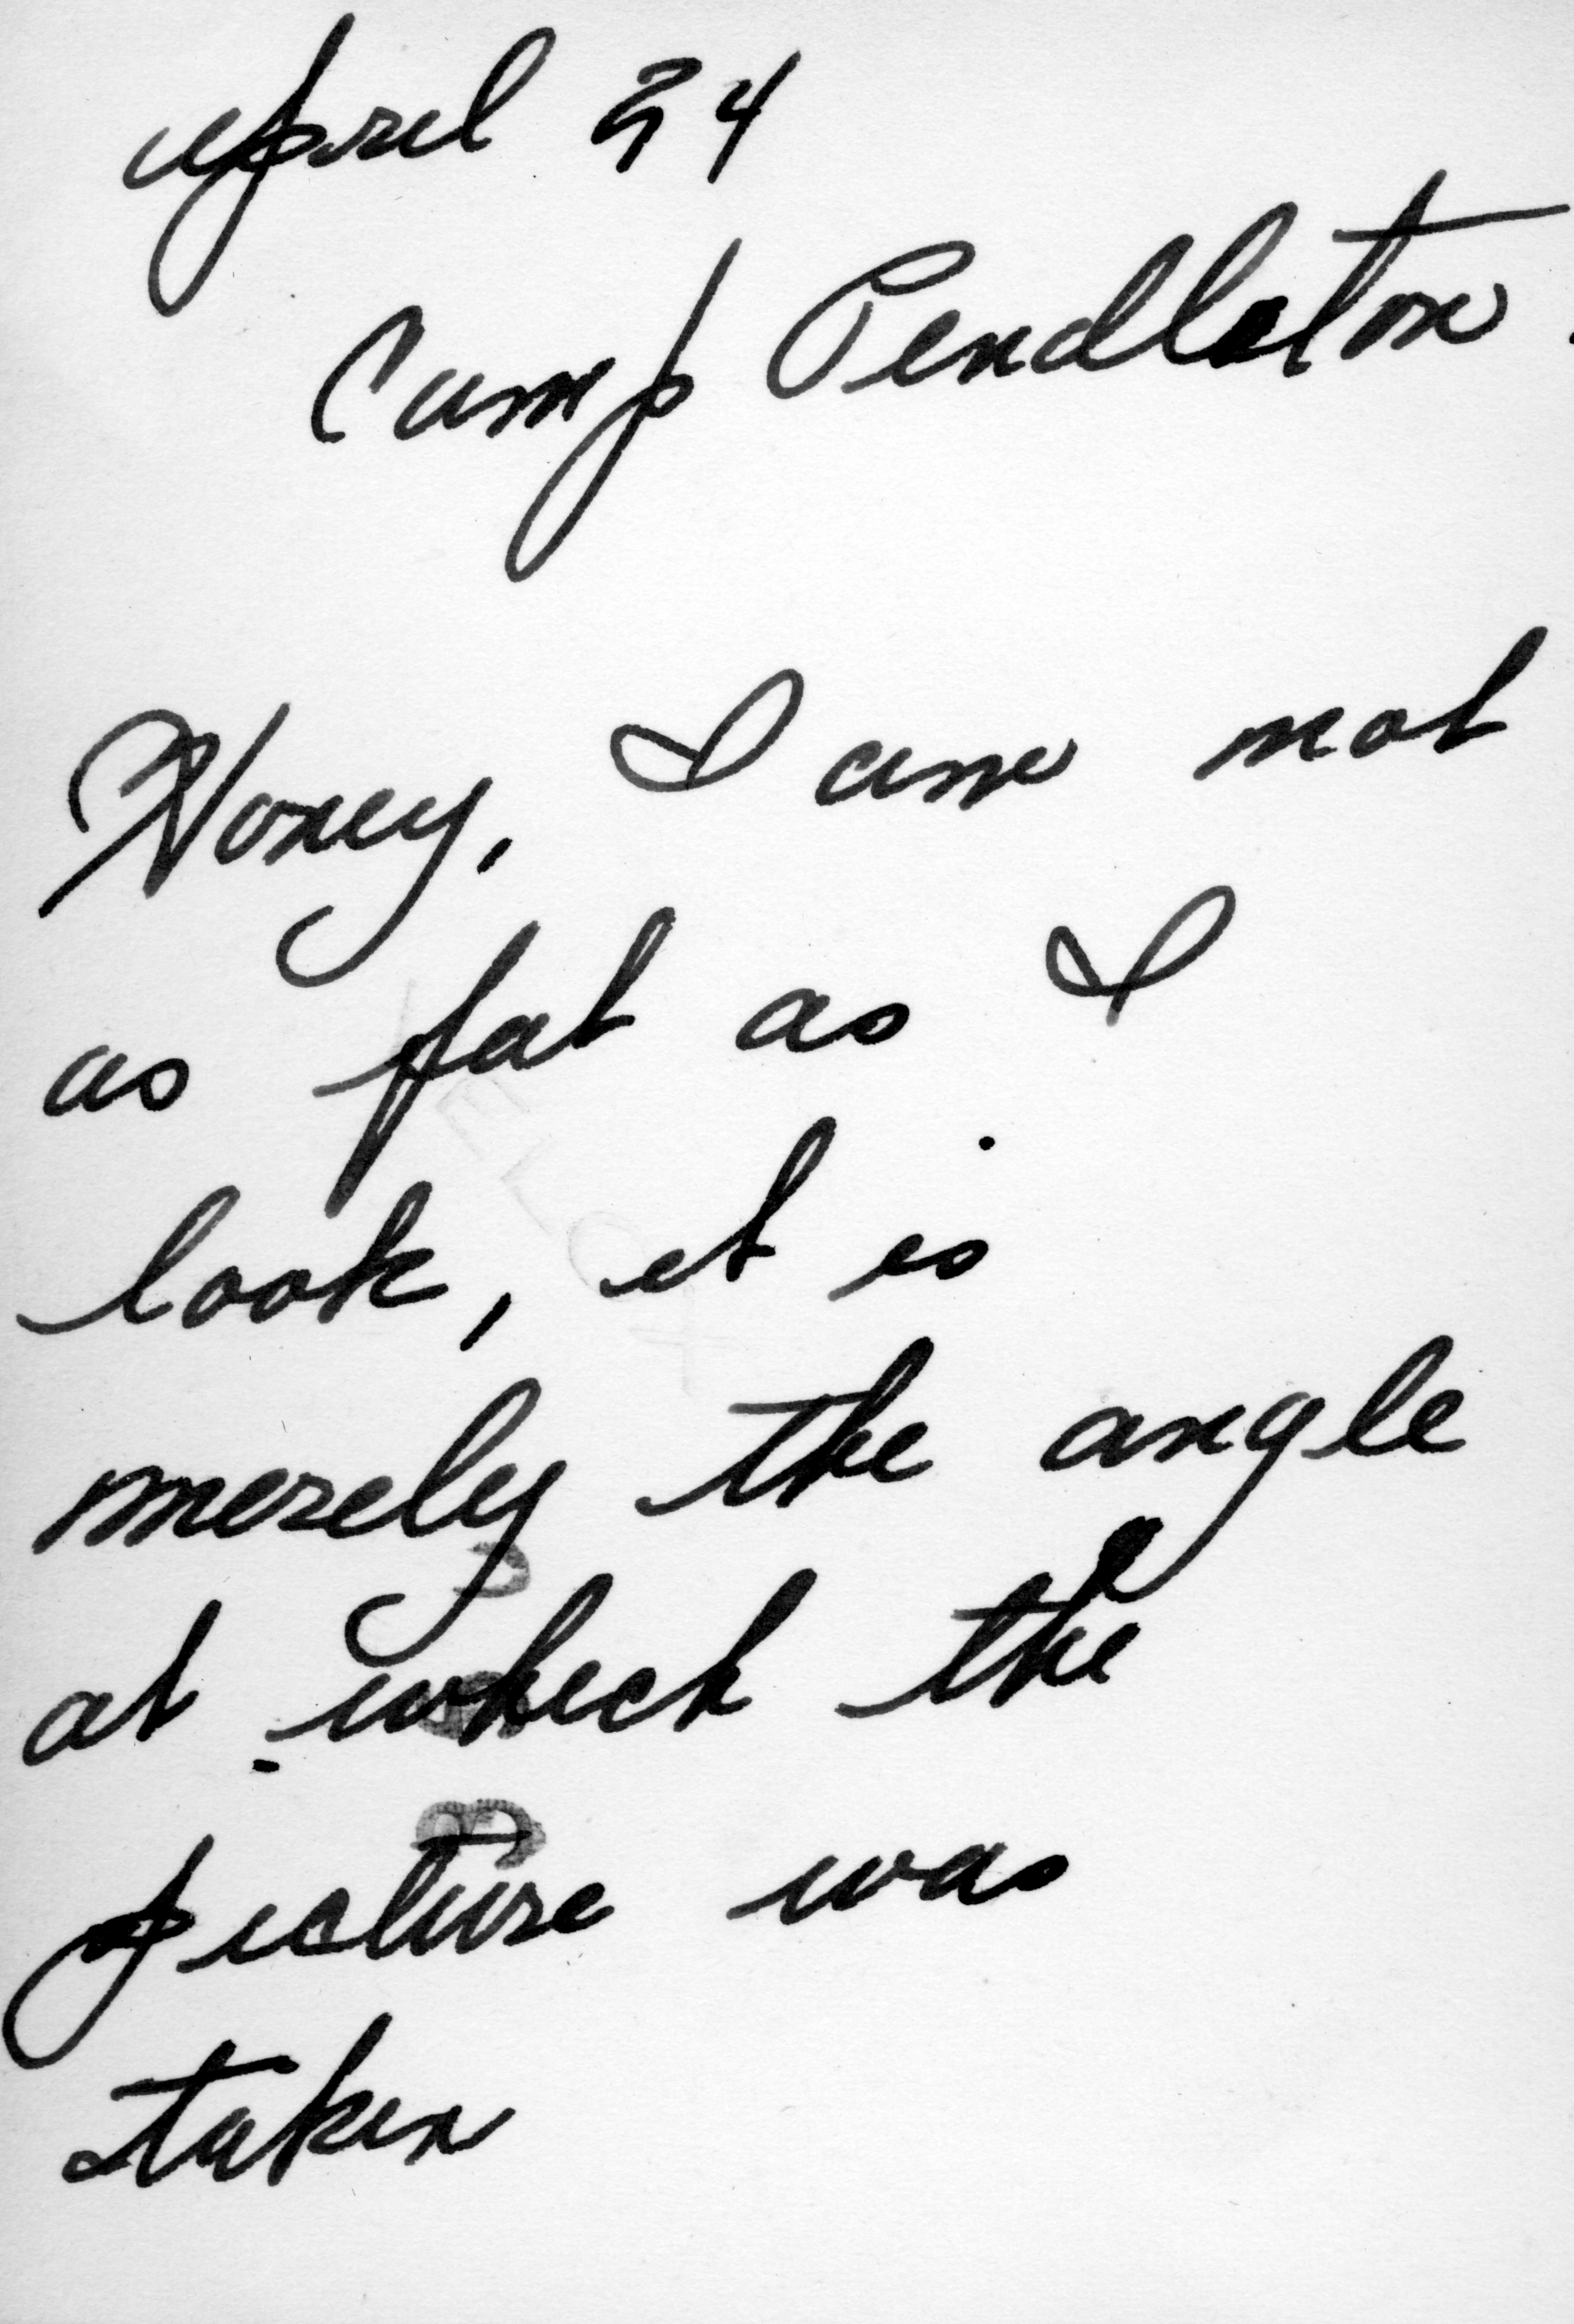 April 24
Camp Pendleton.
Honey, I am not
as fat as I
look, it is
merely the angle
at which the
picture was
taken
VELOX